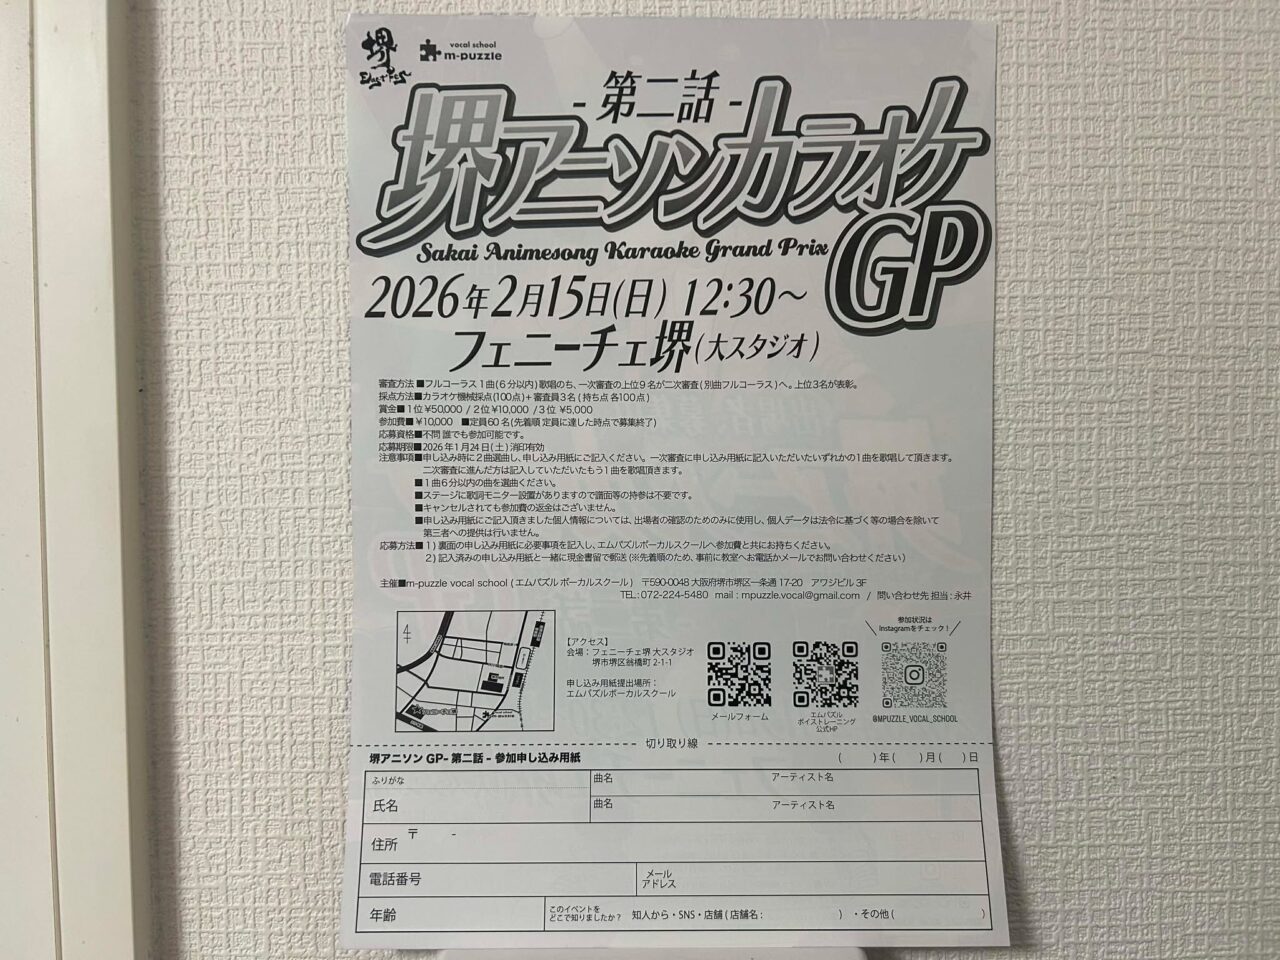 堺
vocal school
m-puzzle
- 第二話 -
堺アニソンカラオケ
GP
Sakai Animesong Karaoke Grand Prix
2026年2月15日(日) 12:30〜
フェニーチェ堺(大スタジオ)
審査方法■フルコーラス1曲(6分以内)歌唱のち、一次審査の上位9名が二次審査(別曲フルコーラス)へ。上位3名が表彰。
採点方法■カラオケ機械採点(100点)+審査員3名(持ち点 各100点)
賞金■1位 ¥50,000 / 2位 ¥10,000 / 3位 ¥5,000
参加費■¥10,000 ■定員60名(先着順 定員に達した時点で募集終了)
応募資格■不問 誰でも参加可能です。
応募期限■2026年1月24日(土)消印有効
注意事項■申し込み時に2曲選曲し、申し込み用紙にご記入ください。一次審査に申し込み用紙に記入いただいたいずれかの1曲を歌唱して頂きます。
二次審査に進んだ方は記入していただいたもう1曲を歌唱頂きます。
■1曲6分以内の曲を選曲ください。
■ステージに歌詞モニター設置がありますので譜面等の持参は不要です。
■キャンセルされても参加費の返金はございません。
■申し込み用紙にご記入頂きました個人情報については、出場者の確認のためのみに使用し、個人データは法令に基づく等の場合を除いて
第三者への提供は行いません。
応募方法■1)裏面の申し込み用紙に必要事項を記入し、エムパズルボーカルスクールへ参加費と共にお持ちください。
2)記入済みの申し込み用紙と一緒に現金書留で郵送(※先着順のため、事前に教室へお電話かメールでお問い合わせください)
主催■m-puzzle vocal school (エムパズル ボーカルスクール) 〒590-0048 大阪府堺市堺区一条通 17-20 アワジビル 3F
TEL:072-224-5480 mail:mpuzzle.vocal@gmail.com / 問い合わせ先 担当:永井
【アクセス】
会場:フェニーチェ堺 大スタジオ
堺市堺区翁橋町 2-1-1
申し込み用紙提出場所:
エムパズルボーカルスクール
メールフォーム
エムパズル
ボイストレーニング
公式HP
参加状況は
Instagramをチェック!
@MPUZZLE_VOCAL_SCHOOL
切り取り線
堺アニソン GP- 第二話 - 参加申し込み用紙
( )年( )月( )日
ふりがな
氏名
曲名 アーティスト名
曲名 アーティスト名
住所 〒 -
電話番号
メール
アドレス
年齢
このイベントを
どこで知りましたか?
知人から・SNS・店舗(店舗名: )・その他( )